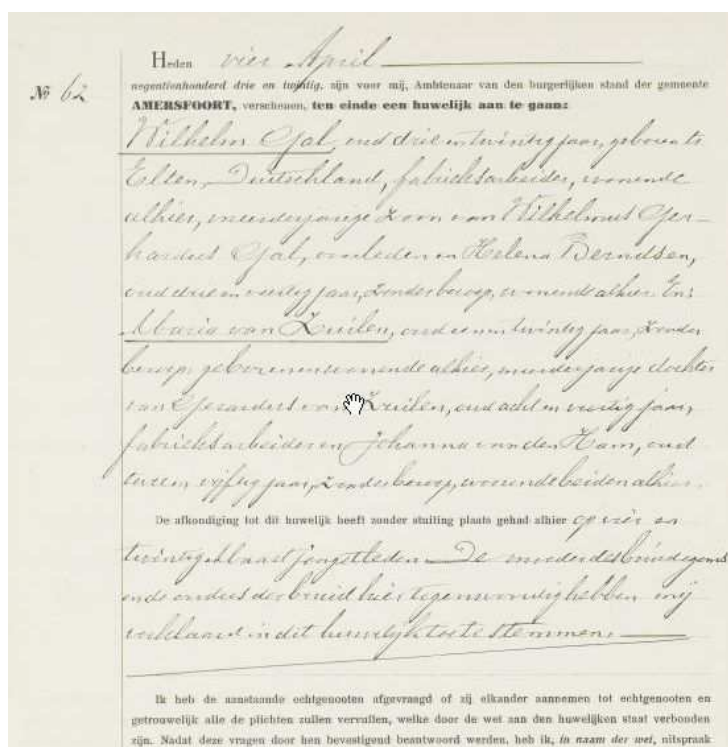 Heden vier April
№ 62
negentienhonderd drie en twintig, zijn voor mij, Ambtenaar van den burgerlijken stand der gemeente
AMERSFOORT, verschenen, ten einde een huwelijk aan te gaan:
Wilhelm Gal, oud drie en twintig jaar, geboren te
Elten, Duitschland, fabrieksarbeider, wonende
alhier, meerderjarige zoon van Wilhelmus Ger-
hardus Gal, overleden en Helena Berndsen,
oud drie en veertig jaar, zonder beroep, wonende alhier. En:
Maria van Zuilen, oud een en twintig jaar, zonder
beroep, geboren en wonende alhier, minderjarige dochter
van Gerardus van Zuilen, oud acht en veertig jaar,
fabrieksarbeider en Johanna van den Ham, oud
twee en vijftig jaar, zonder beroep, wonende beiden alhier.
De afkondiging tot dit huwelijk heeft zonder stuiting plaats gehad alhier op vier en
twintig Maart jongstleden. De moeder des bruidegoms
en de ouders der bruid hier tegenwoordig hebben mij
verklaard in dit huwelijk toe te stemmen.
Ik heb de aanstaande echtgenooten afgevraagd of zij elkander aannemen tot echtgenooten en
getrouwelijk alle de plichten zullen vervullen, welke door de wet aan den huwelijken staat verbonden
zijn. Nadat deze vragen door hen bevestigend beantwoord werden, heb ik, in naam der wet, uitspraak